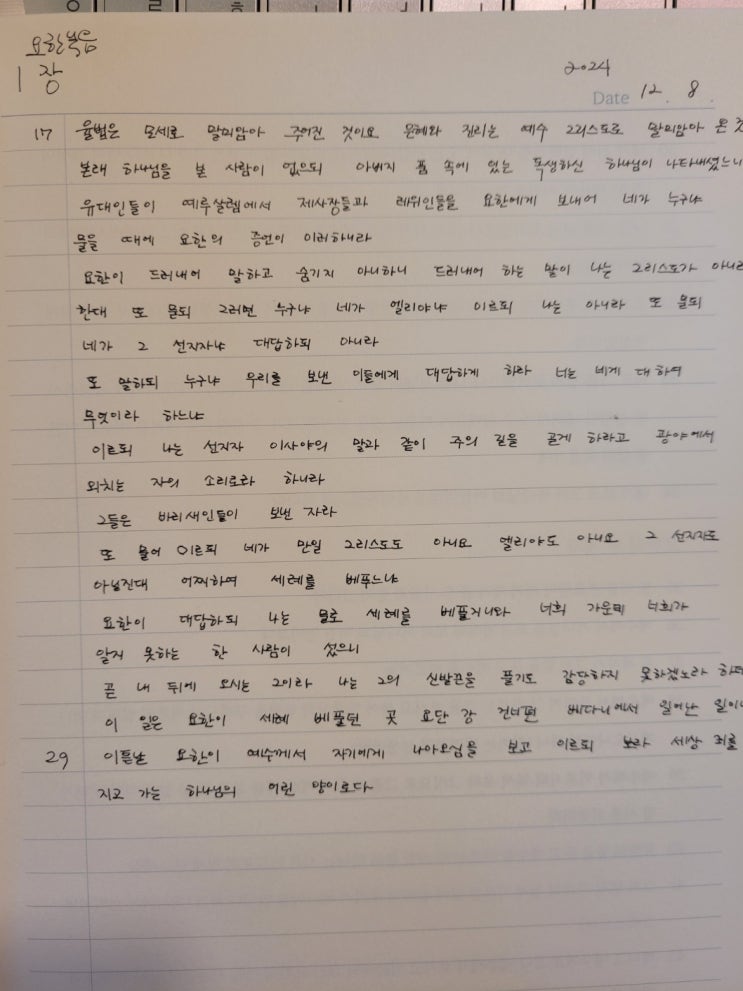 요한복음
1 장
2024
Date 12. 8.
17 율법은 모세로 말미암아 주어진 것이요 은혜와 진리는 예수 그리스도로 말미암아 온 것
본래 하나님을 본 사람이 없으되 아버지 품 속에 있는 독생하신 하나님이 나타내셨느니
유대인들이 예루살렘에서 제사장들과 레위인들을 요한에게 보내어 네가 누구냐
물을 때에 요한의 증언이 이러하니라
요한이 드러내어 말하고 숨기지 아니하니 드러내어 하는 말이 나는 그리스도가 아니라
한대 또 묻되 그러면 누구냐 네가 엘리야냐 이르되 나는 아니라 또 묻되
네가 그 선지자냐 대답하되 아니라
또 말하되 누구냐 우리를 보낸 이들에게 대답하게 하라 너는 네게 대하여
무엇이라 하느냐
이르되 나는 선지자 이사야의 말과 같이 주의 길을 곧게 하라고 광야에서
외치는 자의 소리로라 하니라
그들은 바리새인들이 보낸 자라
또 물어 이르되 네가 만일 그리스도도 아니요 엘리야도 아니요 그 선지자도
아닐진대 어찌하여 세례를 베푸느냐
요한이 대답하되 나는 물로 세례를 베풀거니와 너희 가운데 너희가
알지 못하는 한 사람이 섰으니
곧 내 뒤에 오시는 그이라 나는 그의 신발끈을 풀기도 감당하지 못하겠노라 하더
이 일은 요한이 세례 베풀던 곳 요단 강 건너편 베다니에서 일어난 일이니
29 이튿날 요한이 예수께서 자기에게 나아오심을 보고 이르되 보라 세상 죄를
지고 가는 하나님의 어린 양이로다